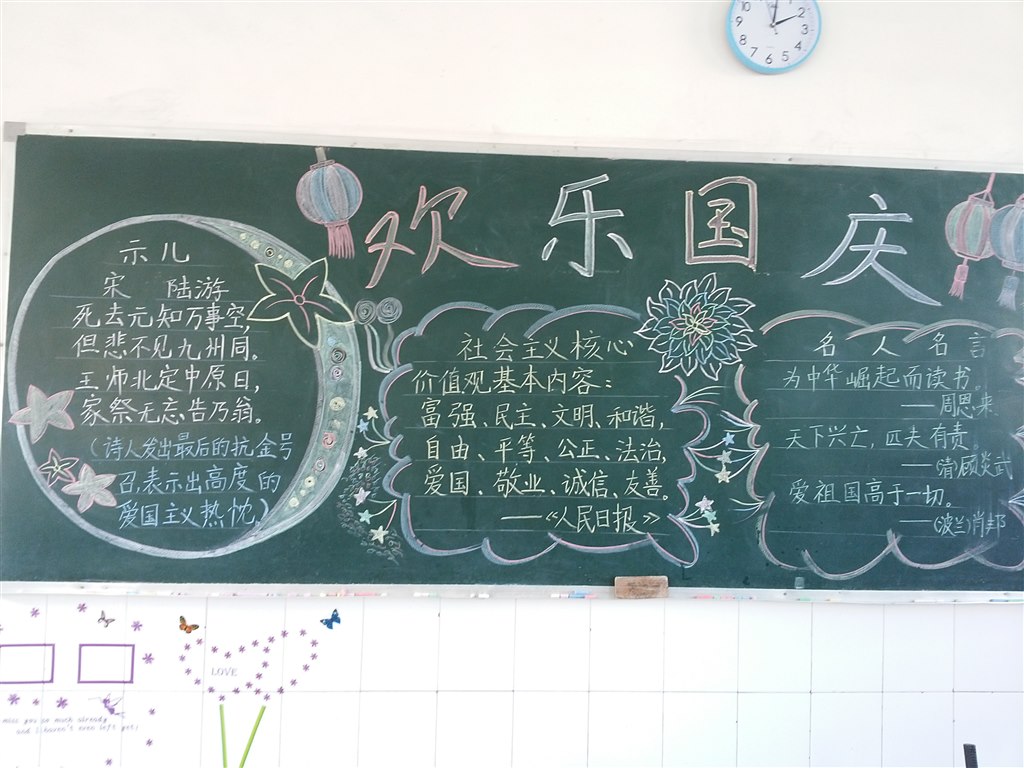 欢乐国庆
示儿
宋 陆游
死去元知万事空,
但悲不见九州同。
王师北定中原日,
家祭无忘告乃翁。
(诗人发出最后的抗金号
召,表示出高度的
爱国主义热忱)
社会主义核心
价值观基本内容:
富强、民主、文明、和谐,
自由、平等、公正、法治,
爱国、敬业、诚信、友善。
——《人民日报》
名人名言
为中华崛起而读书。
——周恩来
天下兴亡,匹夫有责。
——(清)顾炎武
爱祖国高于一切。
——(波兰)肖邦
10 12 2 3 4 5 6 7 8 9
LOVE
miss you so much already
and I haven't even left yet!